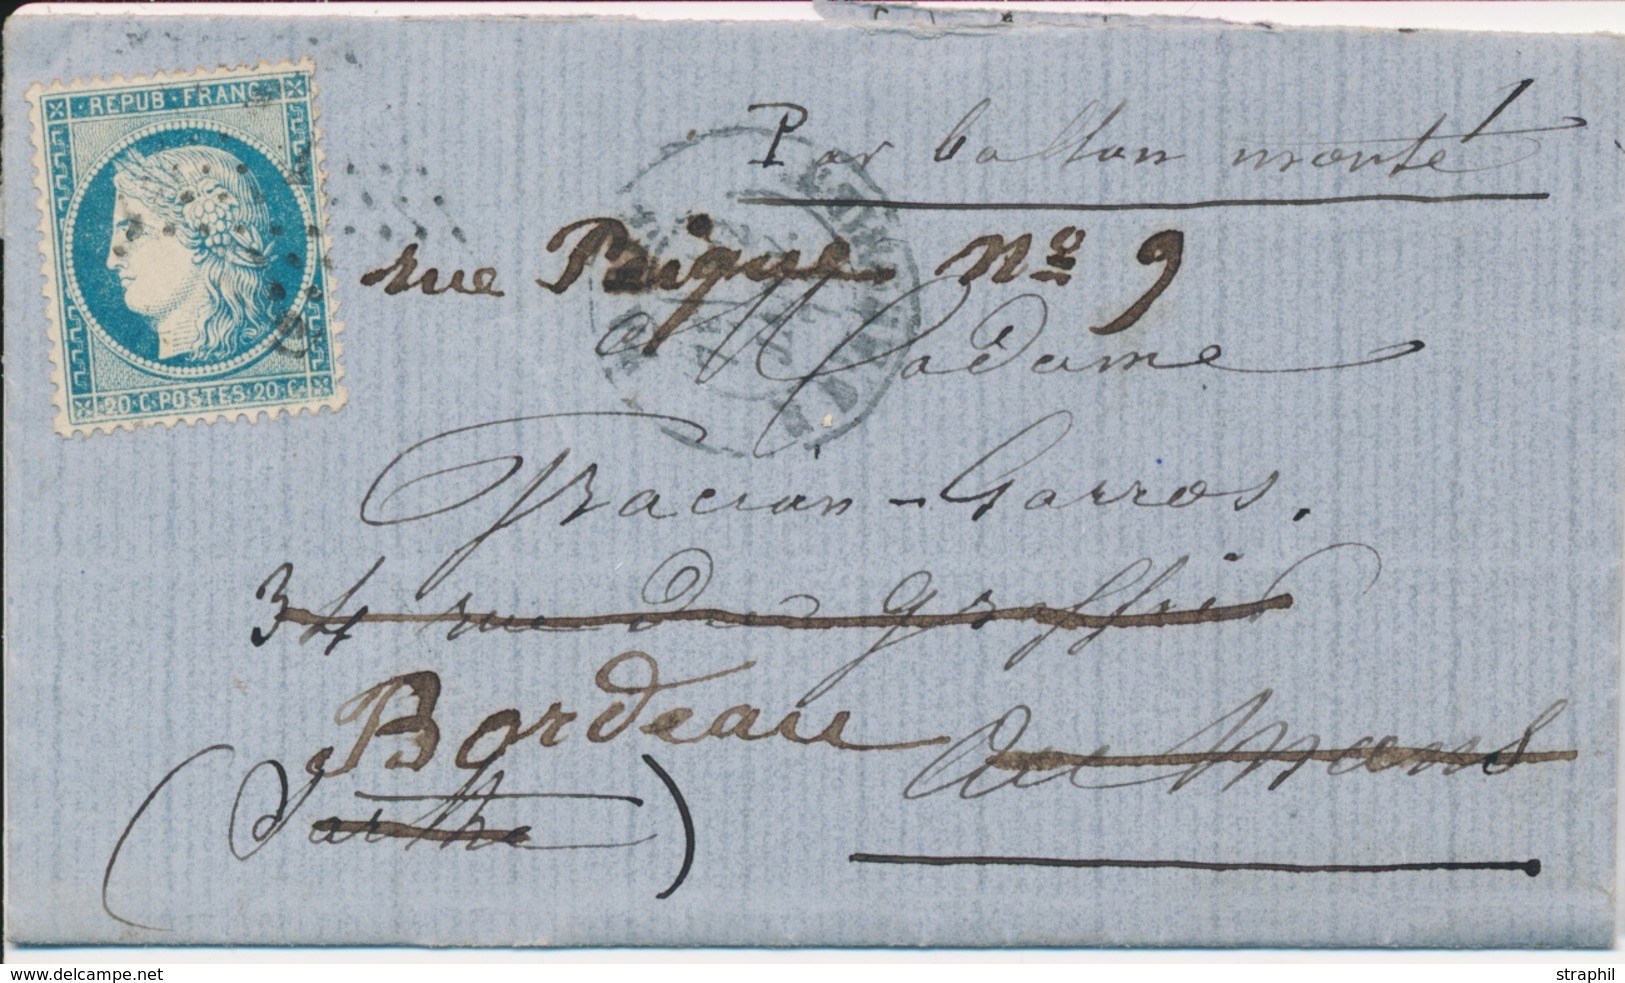 REPUB · FRANC
20 · C · POSTES · 20 · C
Par ballon monté
rue Peigue Nº 9
Madame
Gracian - Garros.
34 rue du
Bordeau
au Mans
(Sarthe)
www.delcampe.net
straphil